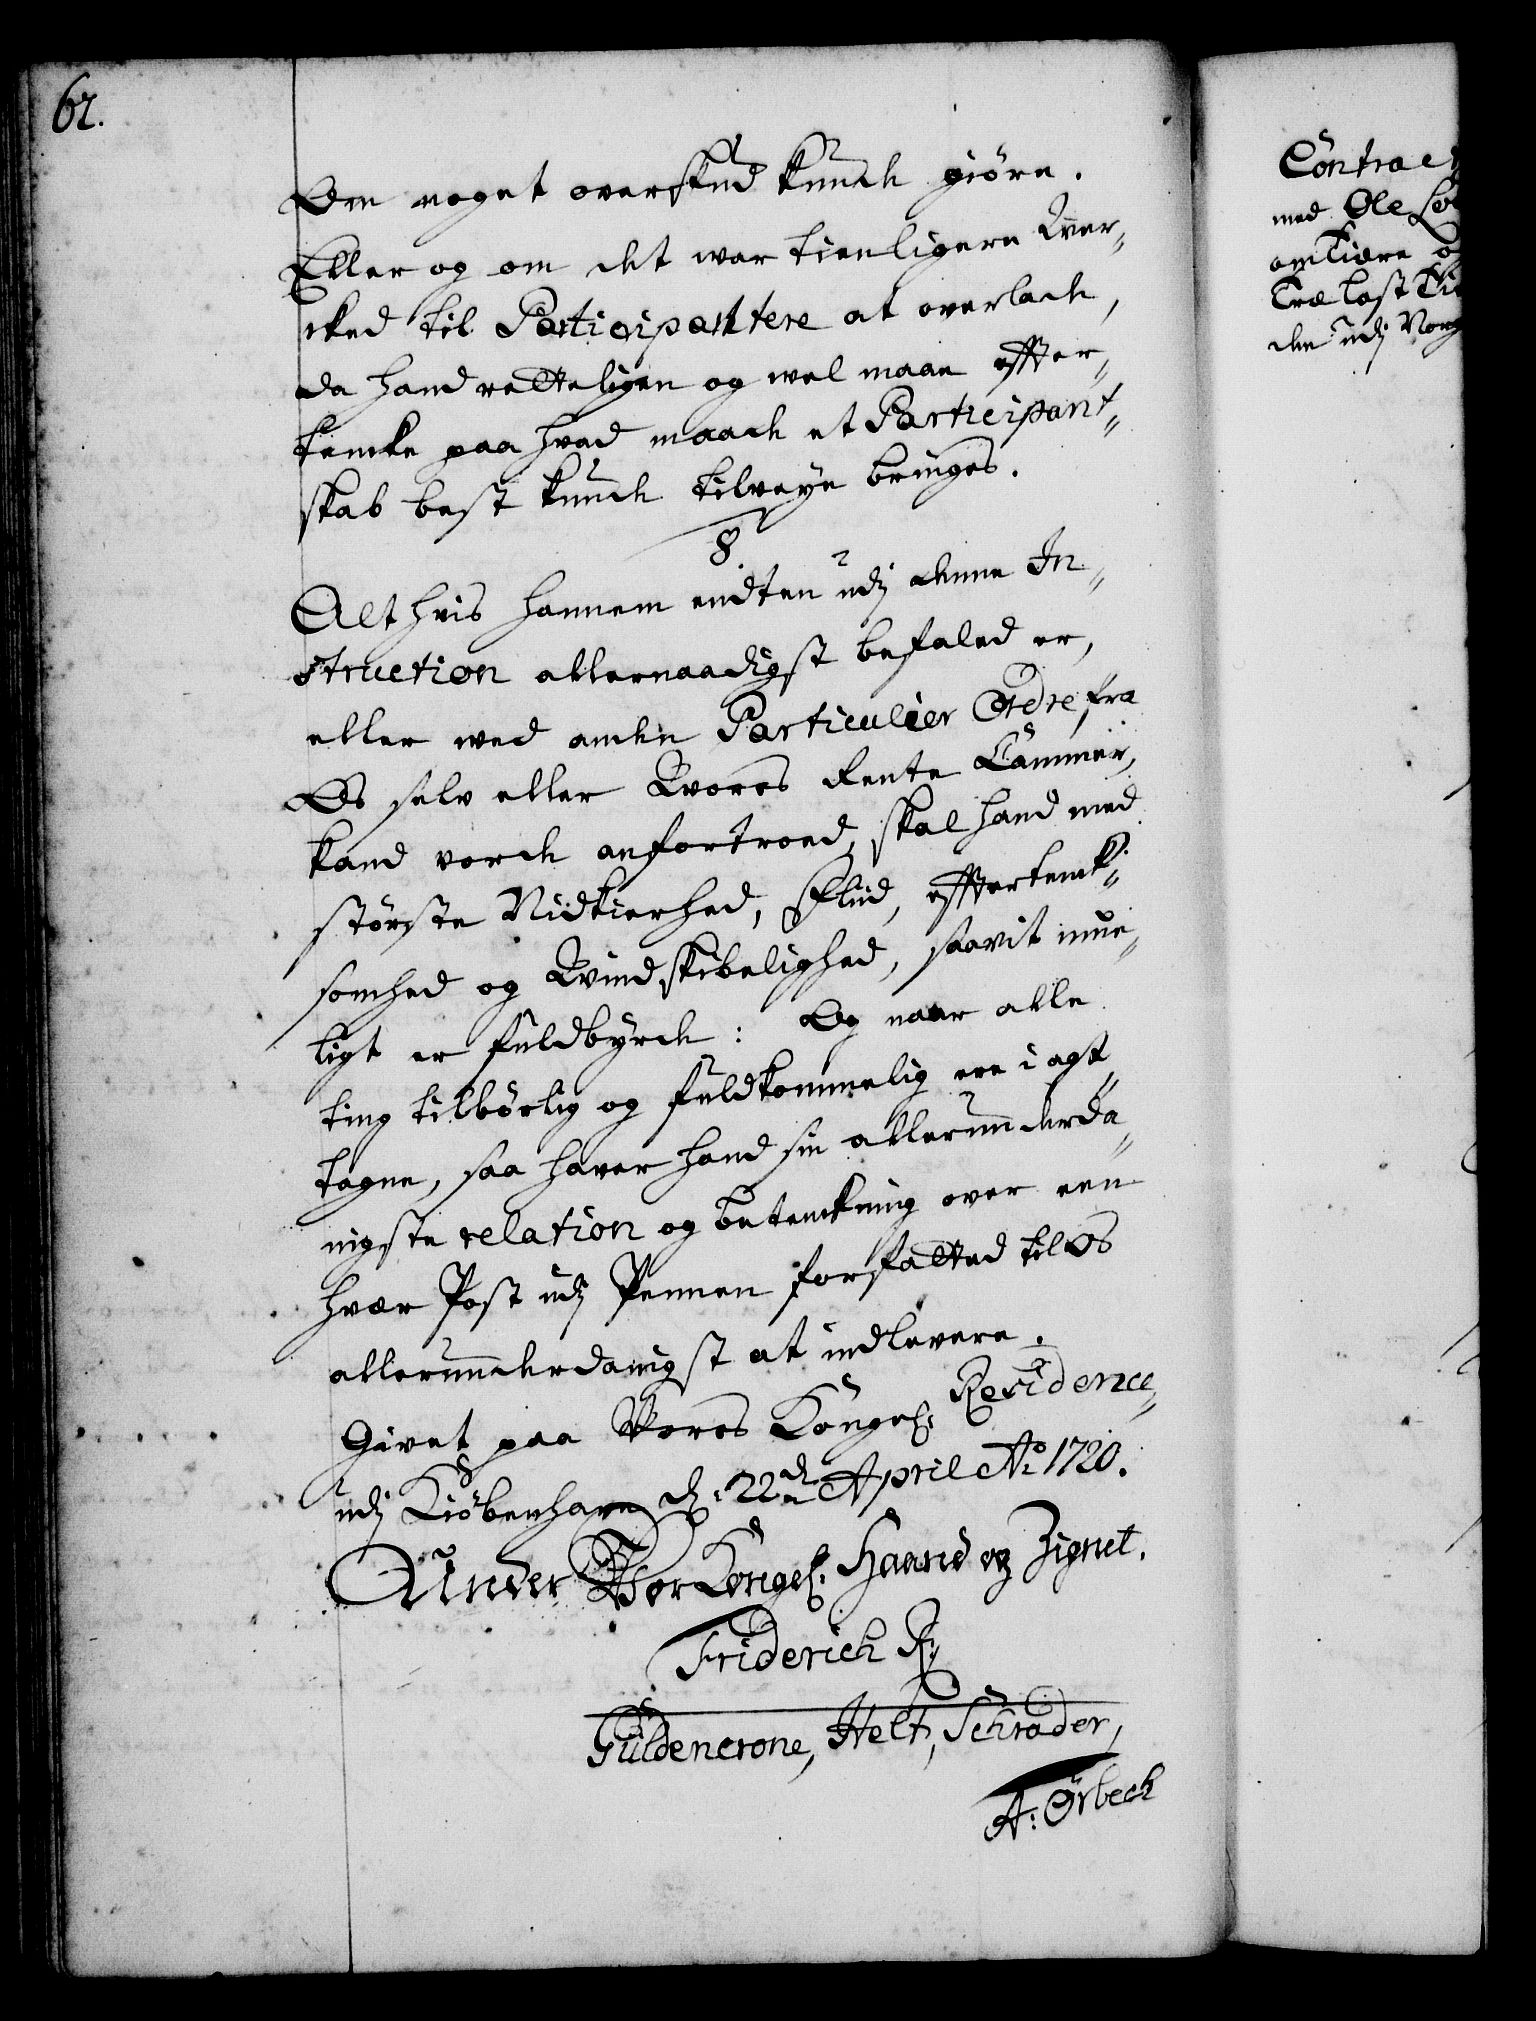 62.
Om noget overskud kunde giøre.
Eller og om det war tienligere Wer-
cked til Participantere at overlade,
da hand retteligen og wel maae effter-
tencke paa hvad maade et Participant-
skab best kunde tilveye bringes.
8.
Alt hvis hannem endten udj denne In-
struction allernaadigst befaled er,
eller wed anden Particulier Ordre fra
Os selv eller Wores Rente Cammer,
kand vorde anfortroed, skal hand med
største Nidkierhed, Fliid, effertenck-
somhed og Windskibelighed, saavit mue-
ligt er fuldbyrde: Og naar alle
ting tilbørlig og fuldkommelig ere i agt
tagne, saa haver hand sin allerunderda-
nigste relation og betenkning over een
hvær Post udj Pennen forfatted til Os
allerunderdanigst at indlevere.
Givet paa Vores Kongel: Residence,
udj Kiøbenhavn d: 22de April Ao 1720.
Under Vor Kongel: Haand og Zignet.
Friderich R:
Güldencrone, Helt, Schrader,
A: Ørbech
Contract
med Ole
om Tiære
Træ last
den udj